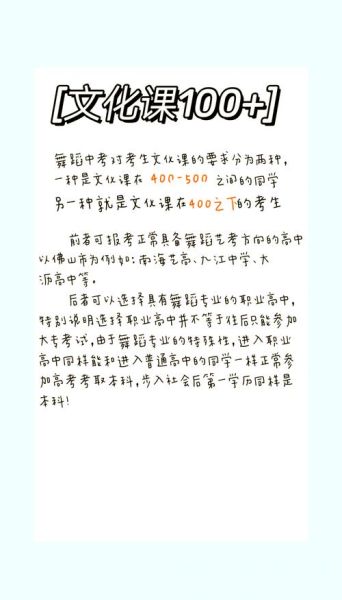 [文化课100+]
舞蹈中考对考生文化课的要求分为两种，
一种是文化课在 400-500 之间的同学
另一种就是文化课在400之下的考生
前者可报考正常具备舞蹈艺考方向的高中
以佛山市为例如：南海艺高、九江中学、大
沥高中等。
后者可以选择具有舞蹈专业的职业高中，
特别说明选择职业高中并不等于往后只能参加
大专考试，由于舞蹈专业的特殊性，进入职业
高中同样能和进入普通高中的同学一样正常参
加高考考取本科，步入社会后第一学历同样是
本科！